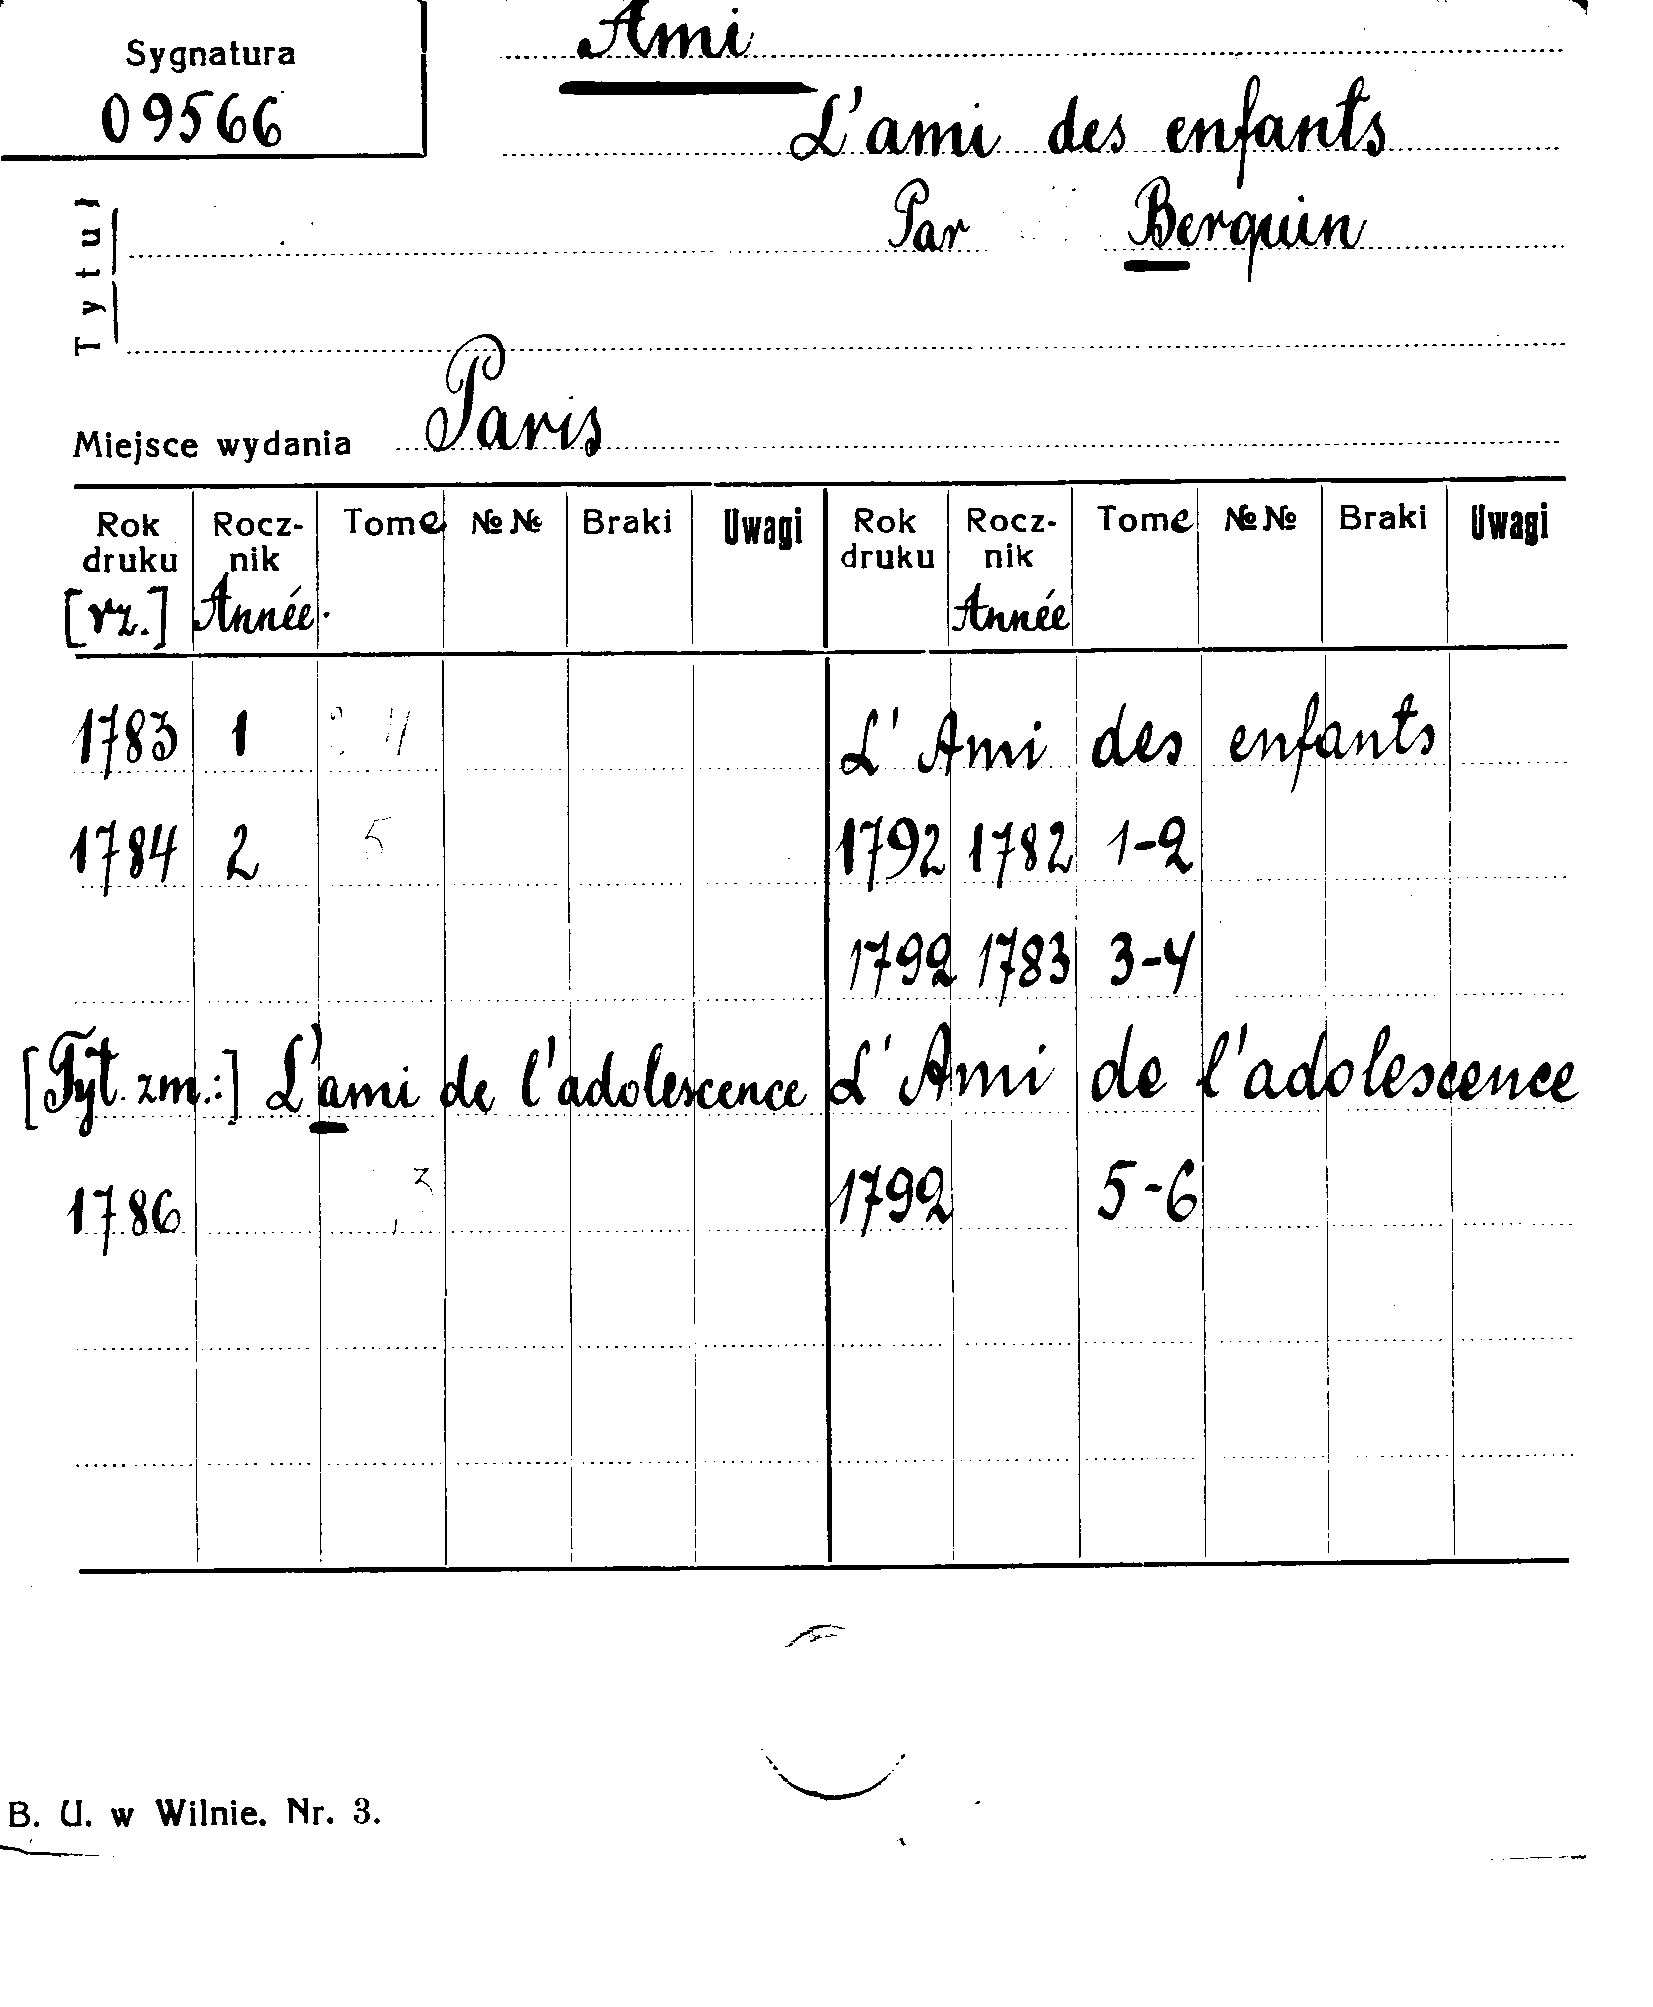 Sygnatura
09566
Ami
L'ami des enfants
Par Berquin
Tytuł
Miejsce wydania Paris
Rok druku [rz.] Rocz-nik Année. Tome №№ Braki Uwagi Rok druku Rocz-nik Année Tome №№ Braki Uwagi
1783 1 L'Ami des enfants
1784 2 5 1792 1782 1-2
1792 1783 3-4
[Tyt. zm.:] L'ami de l'adolescence L'Ami de l'adolescence
1786 3 1792 5-6
B. U. w Wilnie. Nr. 3.